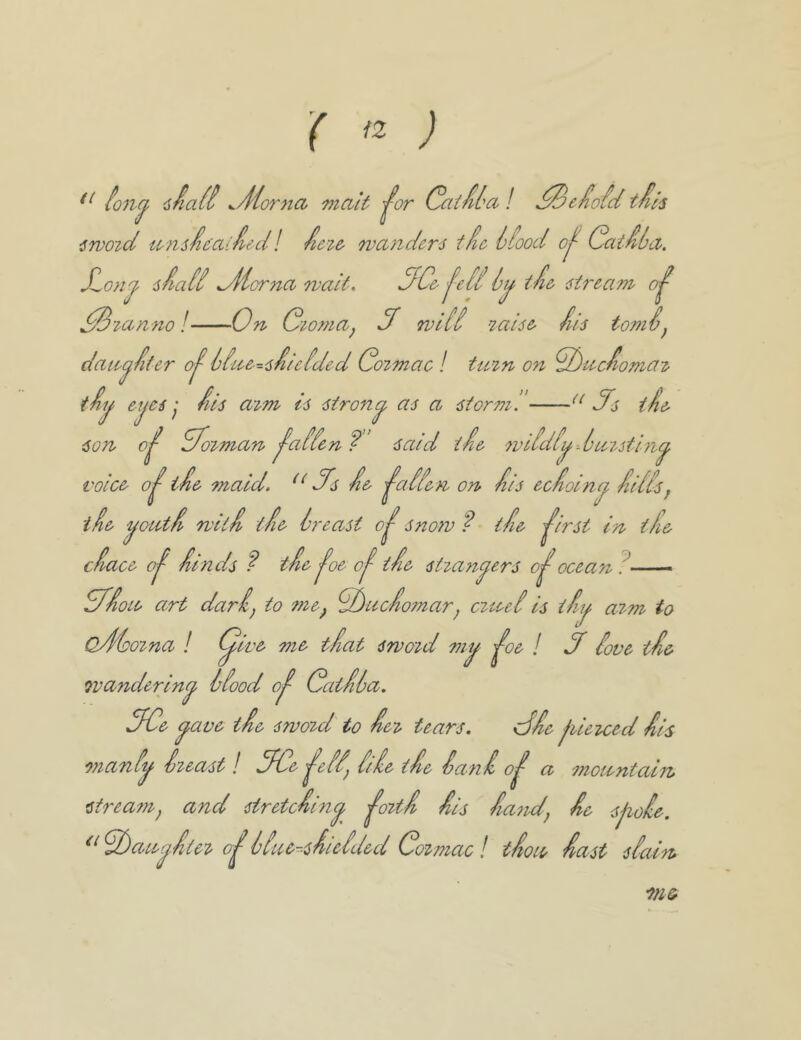 ( 12 )
“ long shall Morna wait for Cathba ! Behold this
sword unsheathed ! here wanders the blood of Cathba.
Long shall Morna wait. He fell by the stream of
Branno !——On Croma, I will raise his tomb,
daughter of blue=shielded Cormac ! turn on Duchomar
thy eyes ; his arm is strong as a storm.”——“ Is the
son of Torman fallen ?” said the wildly-bursting
voice of the maid. “ Is he fallen on his echoing hills,
the youth with the breast of snow ? the first in the
chace of hinds ? the foe of the strangers of ocean ?——
Thou art dark, to me, Duchomar, cruel is thy arm to
Moorna ! Give me that sword my foe ! I love the
wandering blood of Cathba.
He gave the sword to her tears. She pierced his
manly breast ! He fell, like the bank of a mountain
stream, and stretching forth his hand, he spoke.
“ Daughter of blue=shielded Cormac ! thou hast slain
me